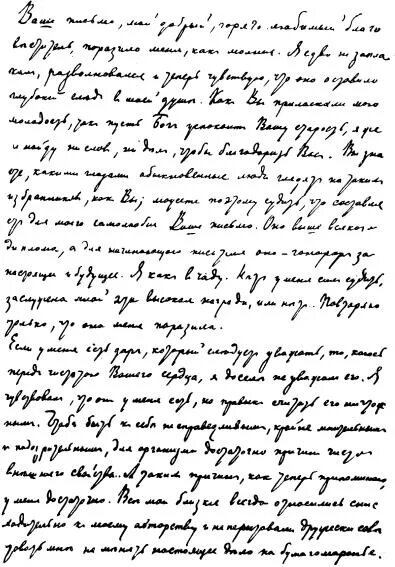 Ваше письмо, мой добрый, горячо любимый благо
вестител, поразило меня, как молния. Я едва не запла
кал, разволновался и теперь чувствую, что оно оставило
глубокий след в моей душе. Как Вы приласкали мою
молодость, так пусть Бог успокоит Вашу старость, я же
не найду ни слов, ни дел, чтобы благодарить Вас. Вы зна
ете, какими глазами обыкновенные люди глядят на таких
избранников, как Вы; можете поэтому судить, что составля
ет для моего самолюбия Ваше письмо. Оно выше всякого
диплома, а для начинающего писателя оно – гонорар за
настоящее и будущее. Я как в чаду. Нет у меня сил судить,
заслужена мной эта высокая награда, или нет. Повторяю
только, что она меня поразила.
Если у меня есть дар, который следует уважать, то, каюсь
перед чистотою Вашего сердца, я доселе не уважал его. Я
чувствовал, что он у меня есть, но привык считать его ничтож
ным. Чтоб быть к себе несправедливым, крайне мнительным
и подозрительным, для организма достаточно причин чисто
внешнего свойства. А таких причин, как теперь припоминаю,
у меня достаточно. Все мои близкие всегда относились снис
ходительно к моему авторству и не переставали дружески сове
товать мне не менять настоящее дело на бумагомаранье.